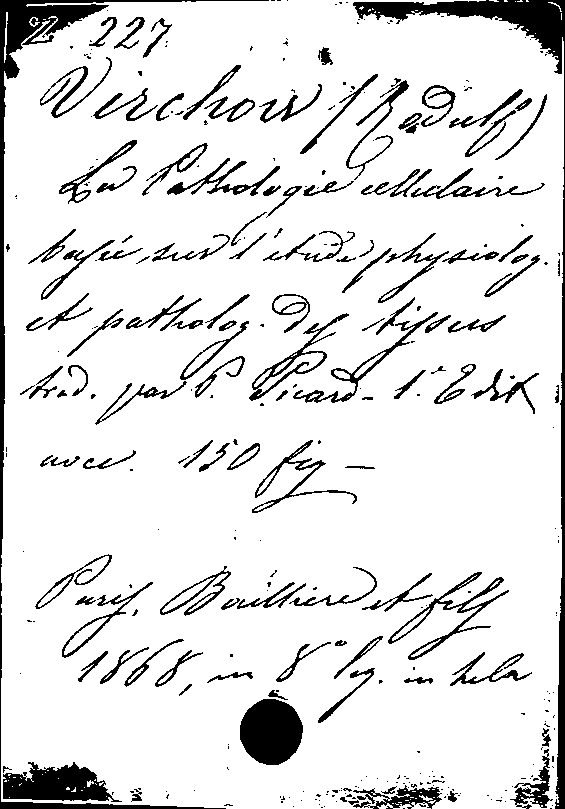 Z. 227
Virchow (Rodulf)
La Pathologie cellulaire
basée sur l'étude physiolog.
et patholog. des tissus
trad. par P. Picard - 1.e Edit
avec. 150 fig —
Paris, Baillière et fils
1868, in 8° leg. in tela